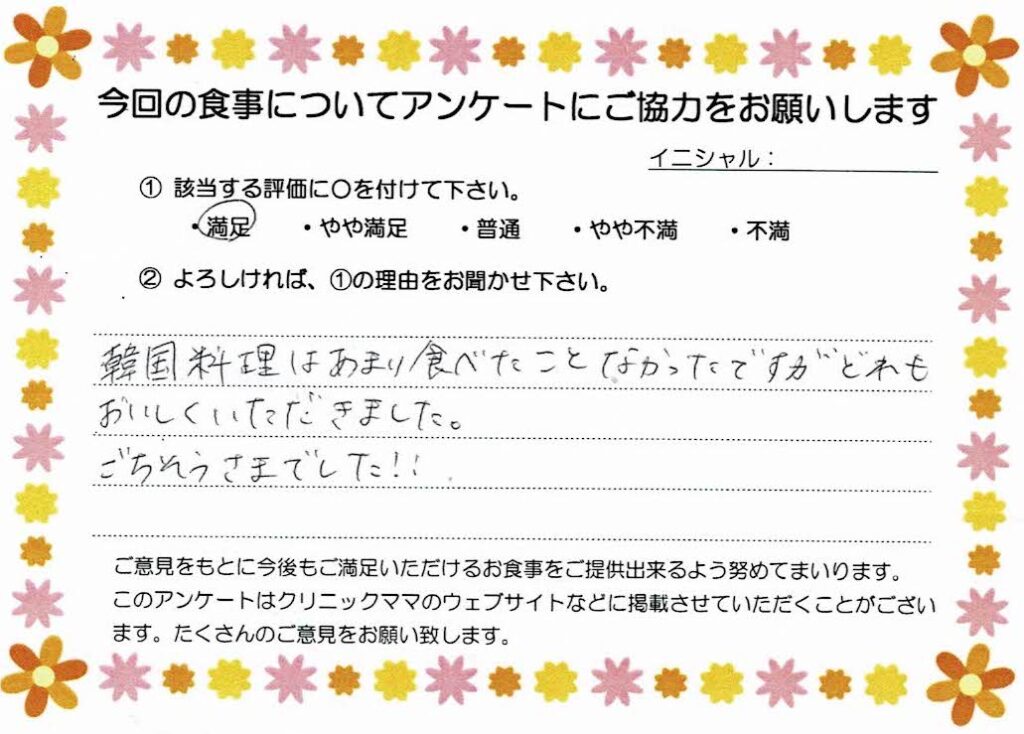 今回の食事についてアンケートにご協力をお願いします
イニシャル：
① 該当する評価に〇を付けて下さい。
・満足 ・やや満足 ・普通 ・やや不満 ・不満
② よろしければ、①の理由をお聞かせ下さい。
韓国料理はあまり食べたことなかったですがどれも
おいしくいただきました。
ごちそうさまでした!!
ご意見をもとに今後もご満足いただけるお食事をご提供出来るよう努めてまいります。
このアンケートはクリニックママのウェブサイトなどに掲載させていただくことがござい
ます。たくさんのご意見をお願い致します。